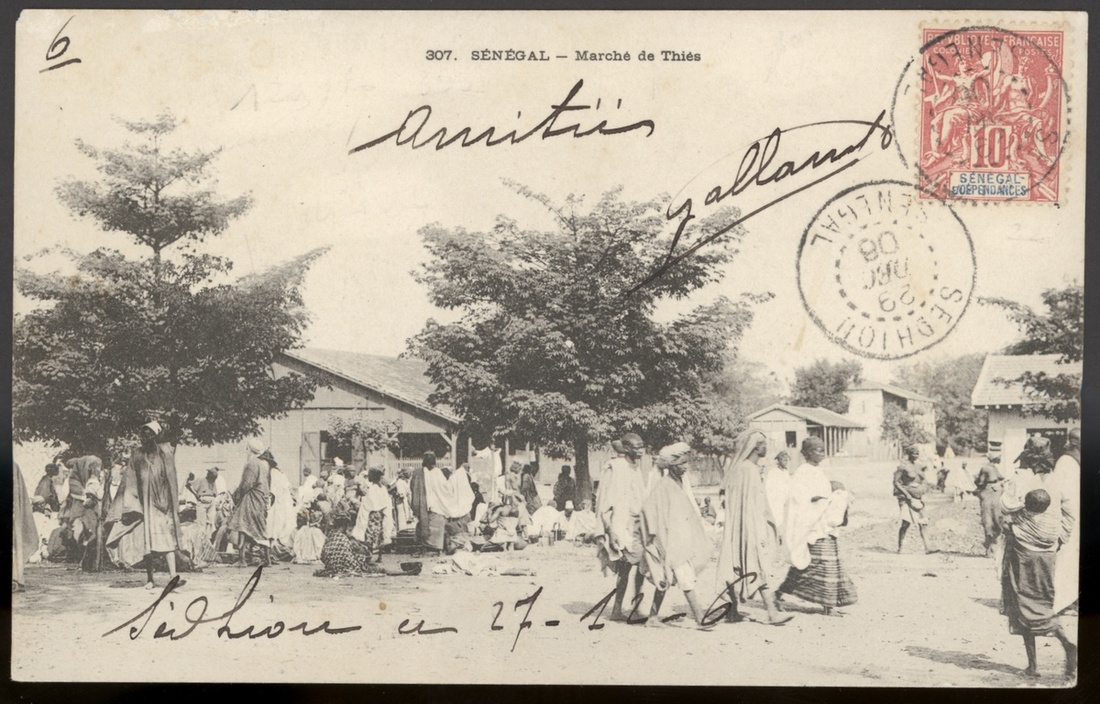 6
307. SÉNÉGAL — Marché de Thiès
Amitiés
Galland
RÉPUBLIQUE FRANÇAISE
COLONIES POSTES
10
SÉNÉGAL
ET DÉPENDANCES
SÉNÉGAL
29
DEC
06
SEDHIOU
Sédhiou le 27-12-6